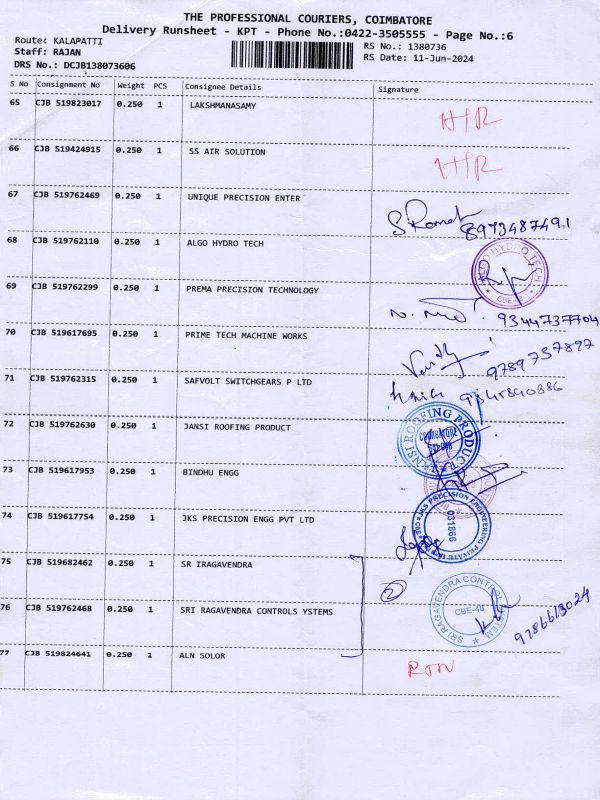 THE PROFESSIONAL COURIERS, COIMBATORE
Delivery Runsheet - KPT - Phone No.:0422-3505555 - Page No.:6
Route: KALAPATTI
RS No.: 1380736
Staff: RAJAN
RS Date: 11-Jun-2024
DRS No.: DCJB138073606
S No Consignment No Weight PCS Consignee Details Signature
65 CJB 519823017 0.250 1 LAKSHMANASAMY
66 CJB 519424915 0.250 1 SS AIR SOLUTION
67 CJB 519762469 0.250 1 UNIQUE PRECISION ENTER
8973487491
68 CJB 519762110 0.250 1 ALGO HYDRO TECH
ALGO HYDRO TECH
CBE-48
69 CJB 519762299 0.250 1 PREMA PRECISION TECHNOLOGY
9344737704
70 CJB 519617695 0.250 1 PRIME TECH MACHINE WORKS
9789737897
71 CJB 519762315 0.250 1 SAFVOLT SWITCHGEARS P LTD
72 CJB 519762630 0.250 1 JANSI ROOFING PRODUCT
JANSI ROOFING PRODUCT
COIMBATORE
73 CJB 519617953 0.250 1 BINDHU ENGG
74 CJB 519617754 0.250 1 JKS PRECISION ENGG PVT LTD
JKS PRECISION ENGINEERING PRIVATE
75 CJB 519682462 0.250 1 SR IRAGAVENDRA
2
76 CJB 519762468 0.250 1 SRI RAGAVENDRA CONTROLS YSTEMS
SRI RAGAVENDRA CONTROL SYSTEM
CBE-48
9786613024
77 CJB 519824641 0.250 1 ALN SOLOR